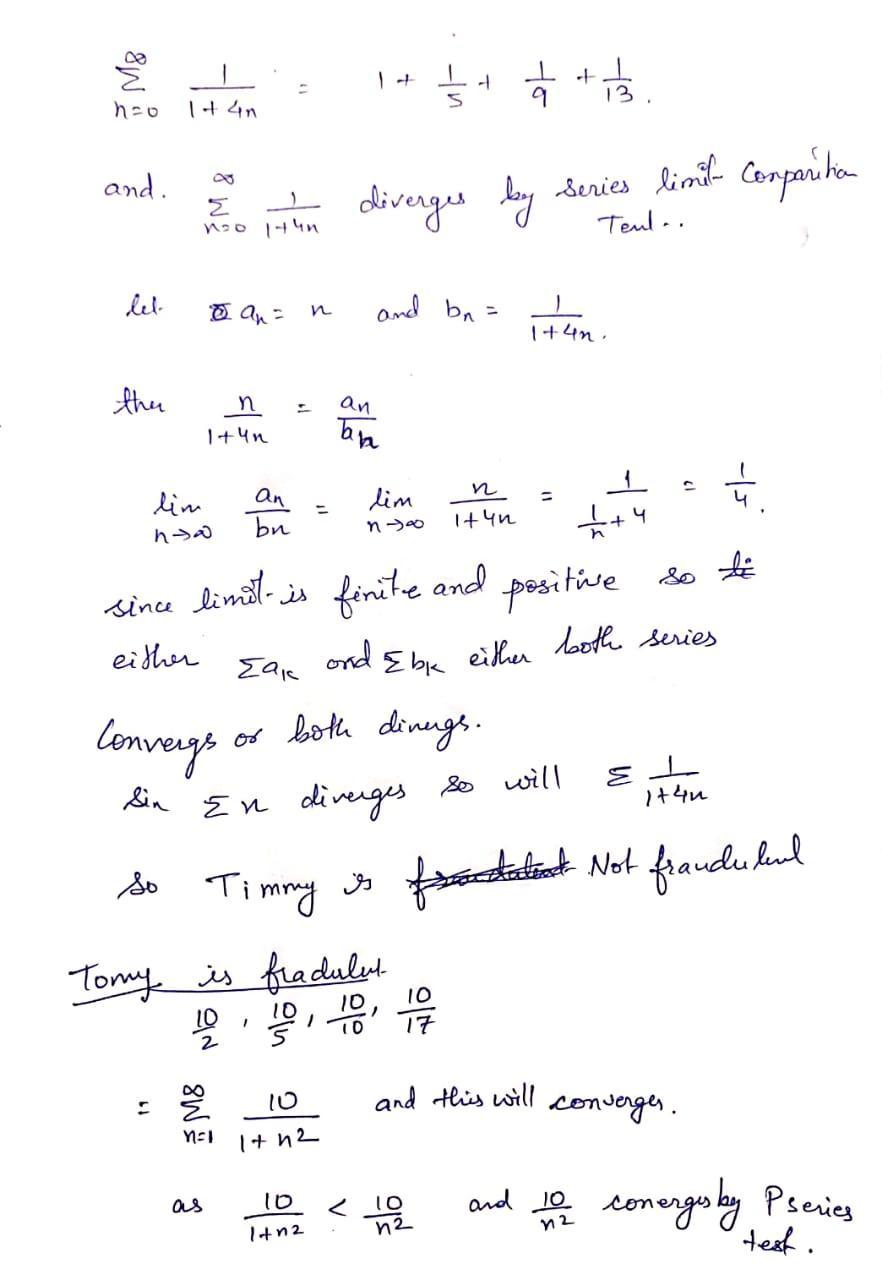 ∞
Σ 1/(1+4n) = 1 + 1/5 + 1/9 + 1/13 .
n=0
and. ∞Σn=0 1/(1+4n) diverges by series limit Comparition
Test..
let aₙ = n and bₙ = 1/(1+4n) .
then n/(1+4n) = aₙ/bₙ
lim n→∞ aₙ/bₙ = lim n→∞ n/(1+4n) = 1/(1/n + 4) = 1/4 .
since limit is finite and positive so
either Σaₖ and Σbₖ either both series
Convergs or both divergs.
Sin Σn diverges so will Σ 1/(1+4n)
so Timmy is Not fraudulent
Tomy is fradulut
10/2 , 10/5 , 10/10 , 10/17
= ∞Σn=1 10/(1+n²) and this will converges.
as 10/(1+n²) < 10/n² and 10/n² conerges by P series
test .